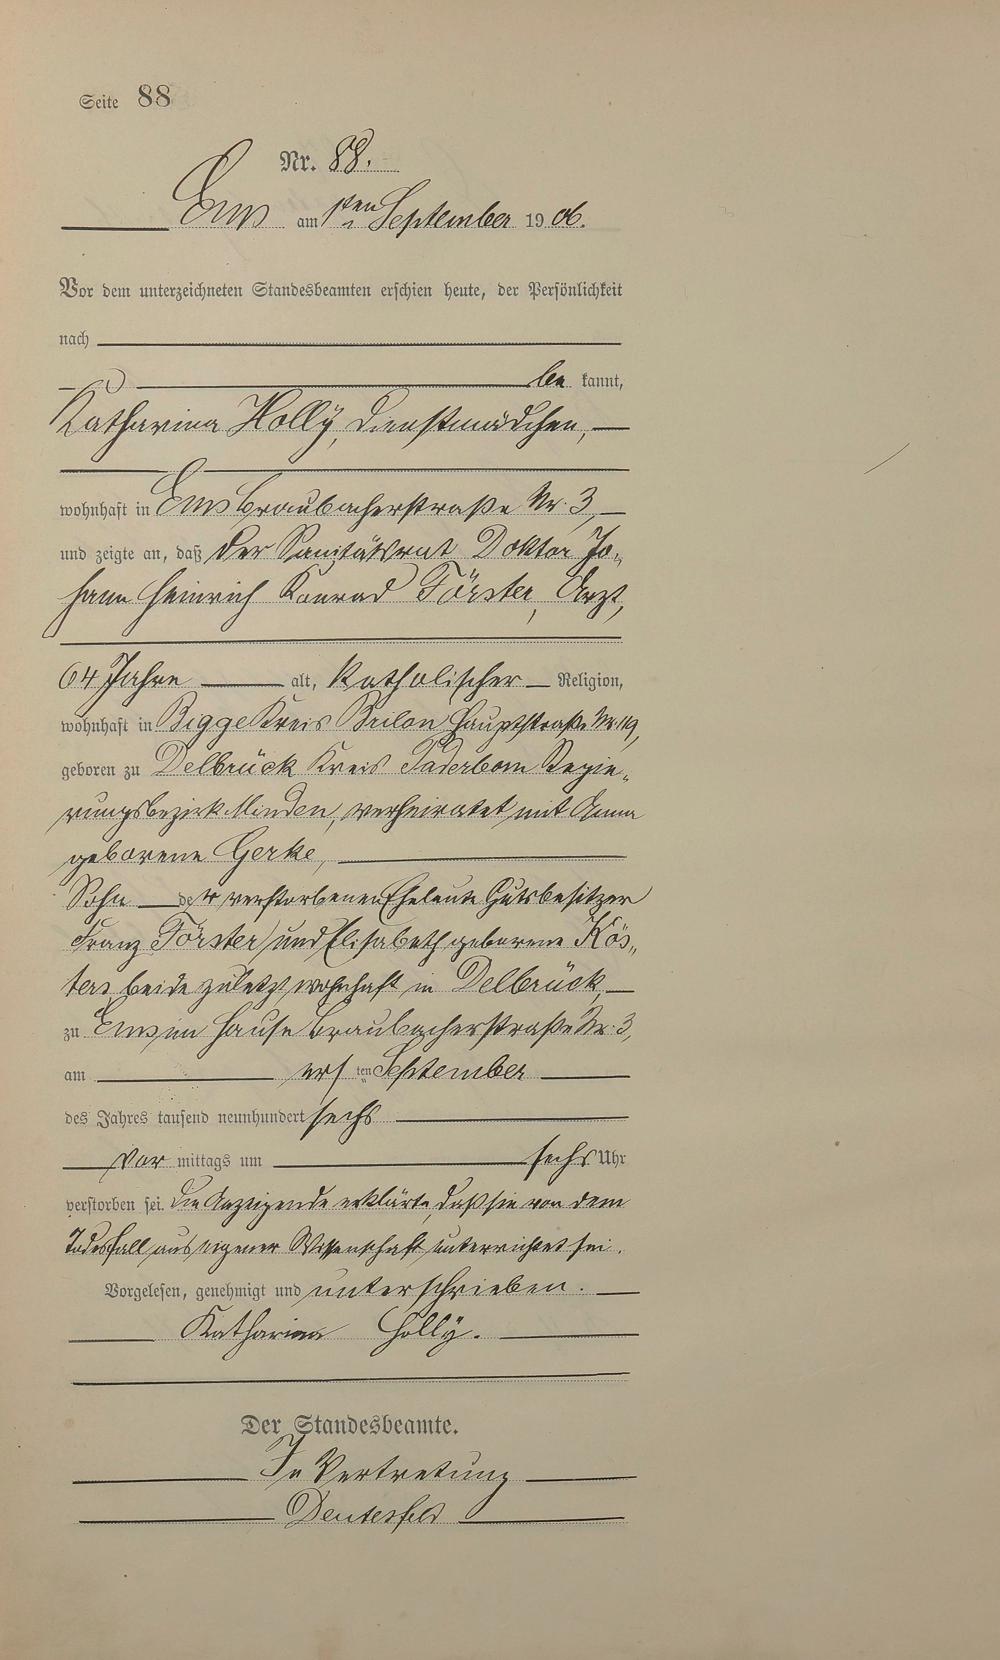 Seite 88
Nr. 88.
Ems am 1ten September 1906.
Vor dem unterzeichneten Standesbeamten erschien heute, der Persönlichkeit
nach
be kannt,
Katharina Holly, Dienstmädchen,
wohnhaft in Ems Braubacherstraße Nr. 3,
und zeigte an, daß der Sanitätsrat Doktor Jo-
hann Heinrich Konrad Förster, Arzt,
64 Jahre alt, katholischer Religion,
wohnhaft in Bigge Kreis Brilon Hauptstraße Nr. 119,
geboren zu Delbrück Kreis Paderborn Regie-
rungsbezirk Minden, verheiratet mit Anna
geborene Gerke,
Sohn der verstorbenen Eheleute Gutsbesitzer
Franz Förster und Elisabeth geborene Kös-
ters beide zuletzt wohnhaft in Delbrück,
zu Ems im Hause Braubacherstraße Nr. 3,
am ersten September
des Jahres tausend neunhundert sechs
Vor mittags um sechs Uhr
verstorben sei. Die Anzeigende erklärte, daß sie von dem
Todesfall aus eigener Wissenschaft unterrichtet sei.
Vorgelesen, genehmigt und unterschrieben.
Katharina Holly.
Der Standesbeamte.
In Vertretung